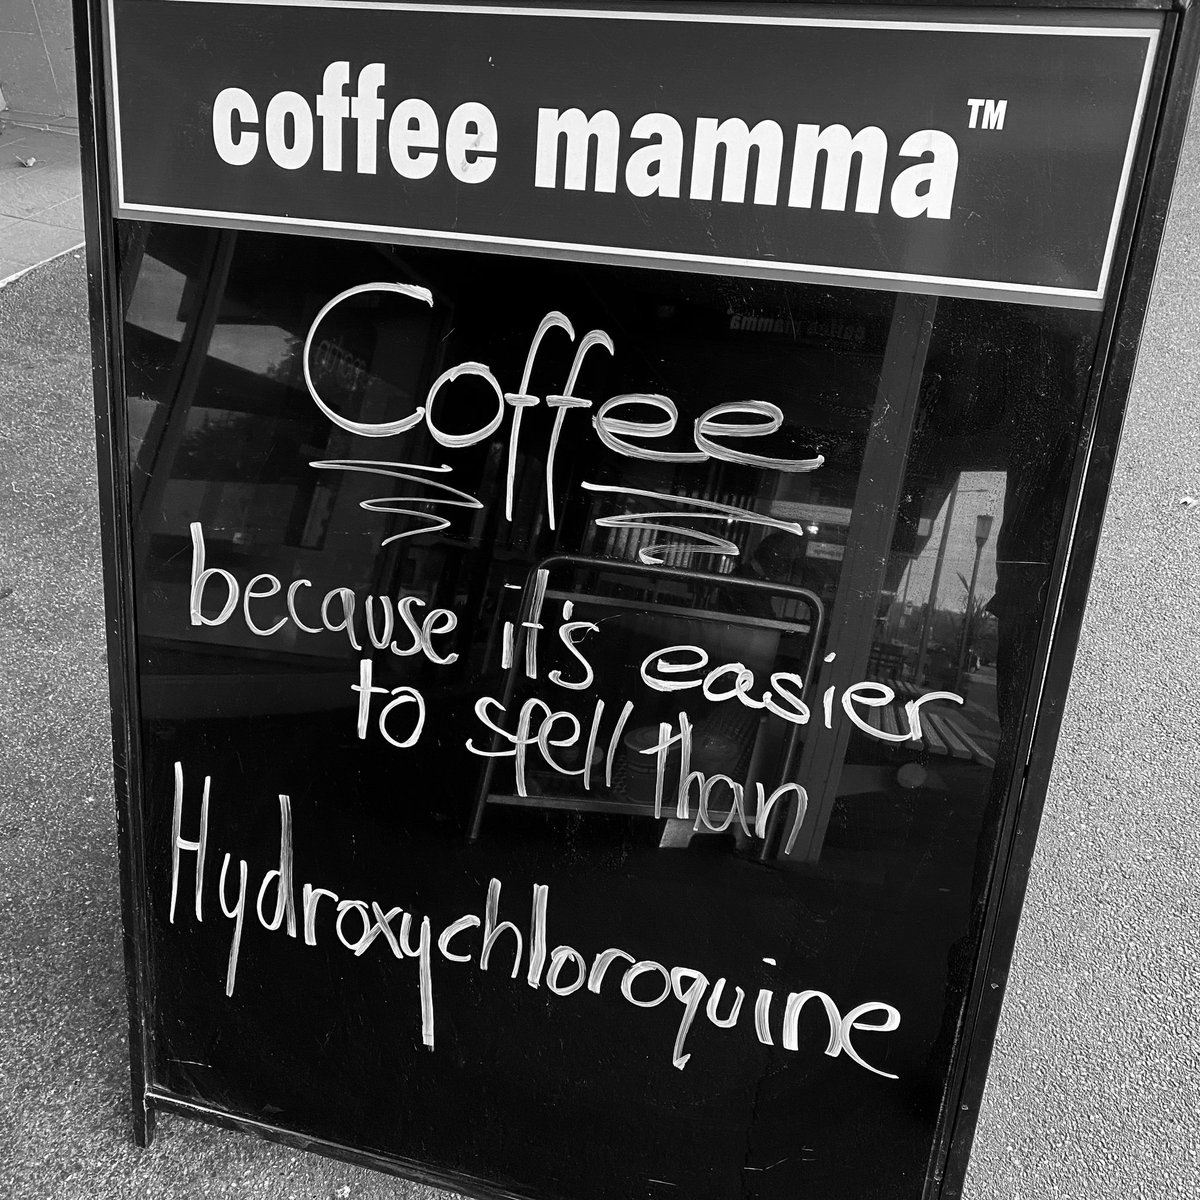 coffee mamma™
Coffee
because it's easier
to spell than
Hydroxychloroquine